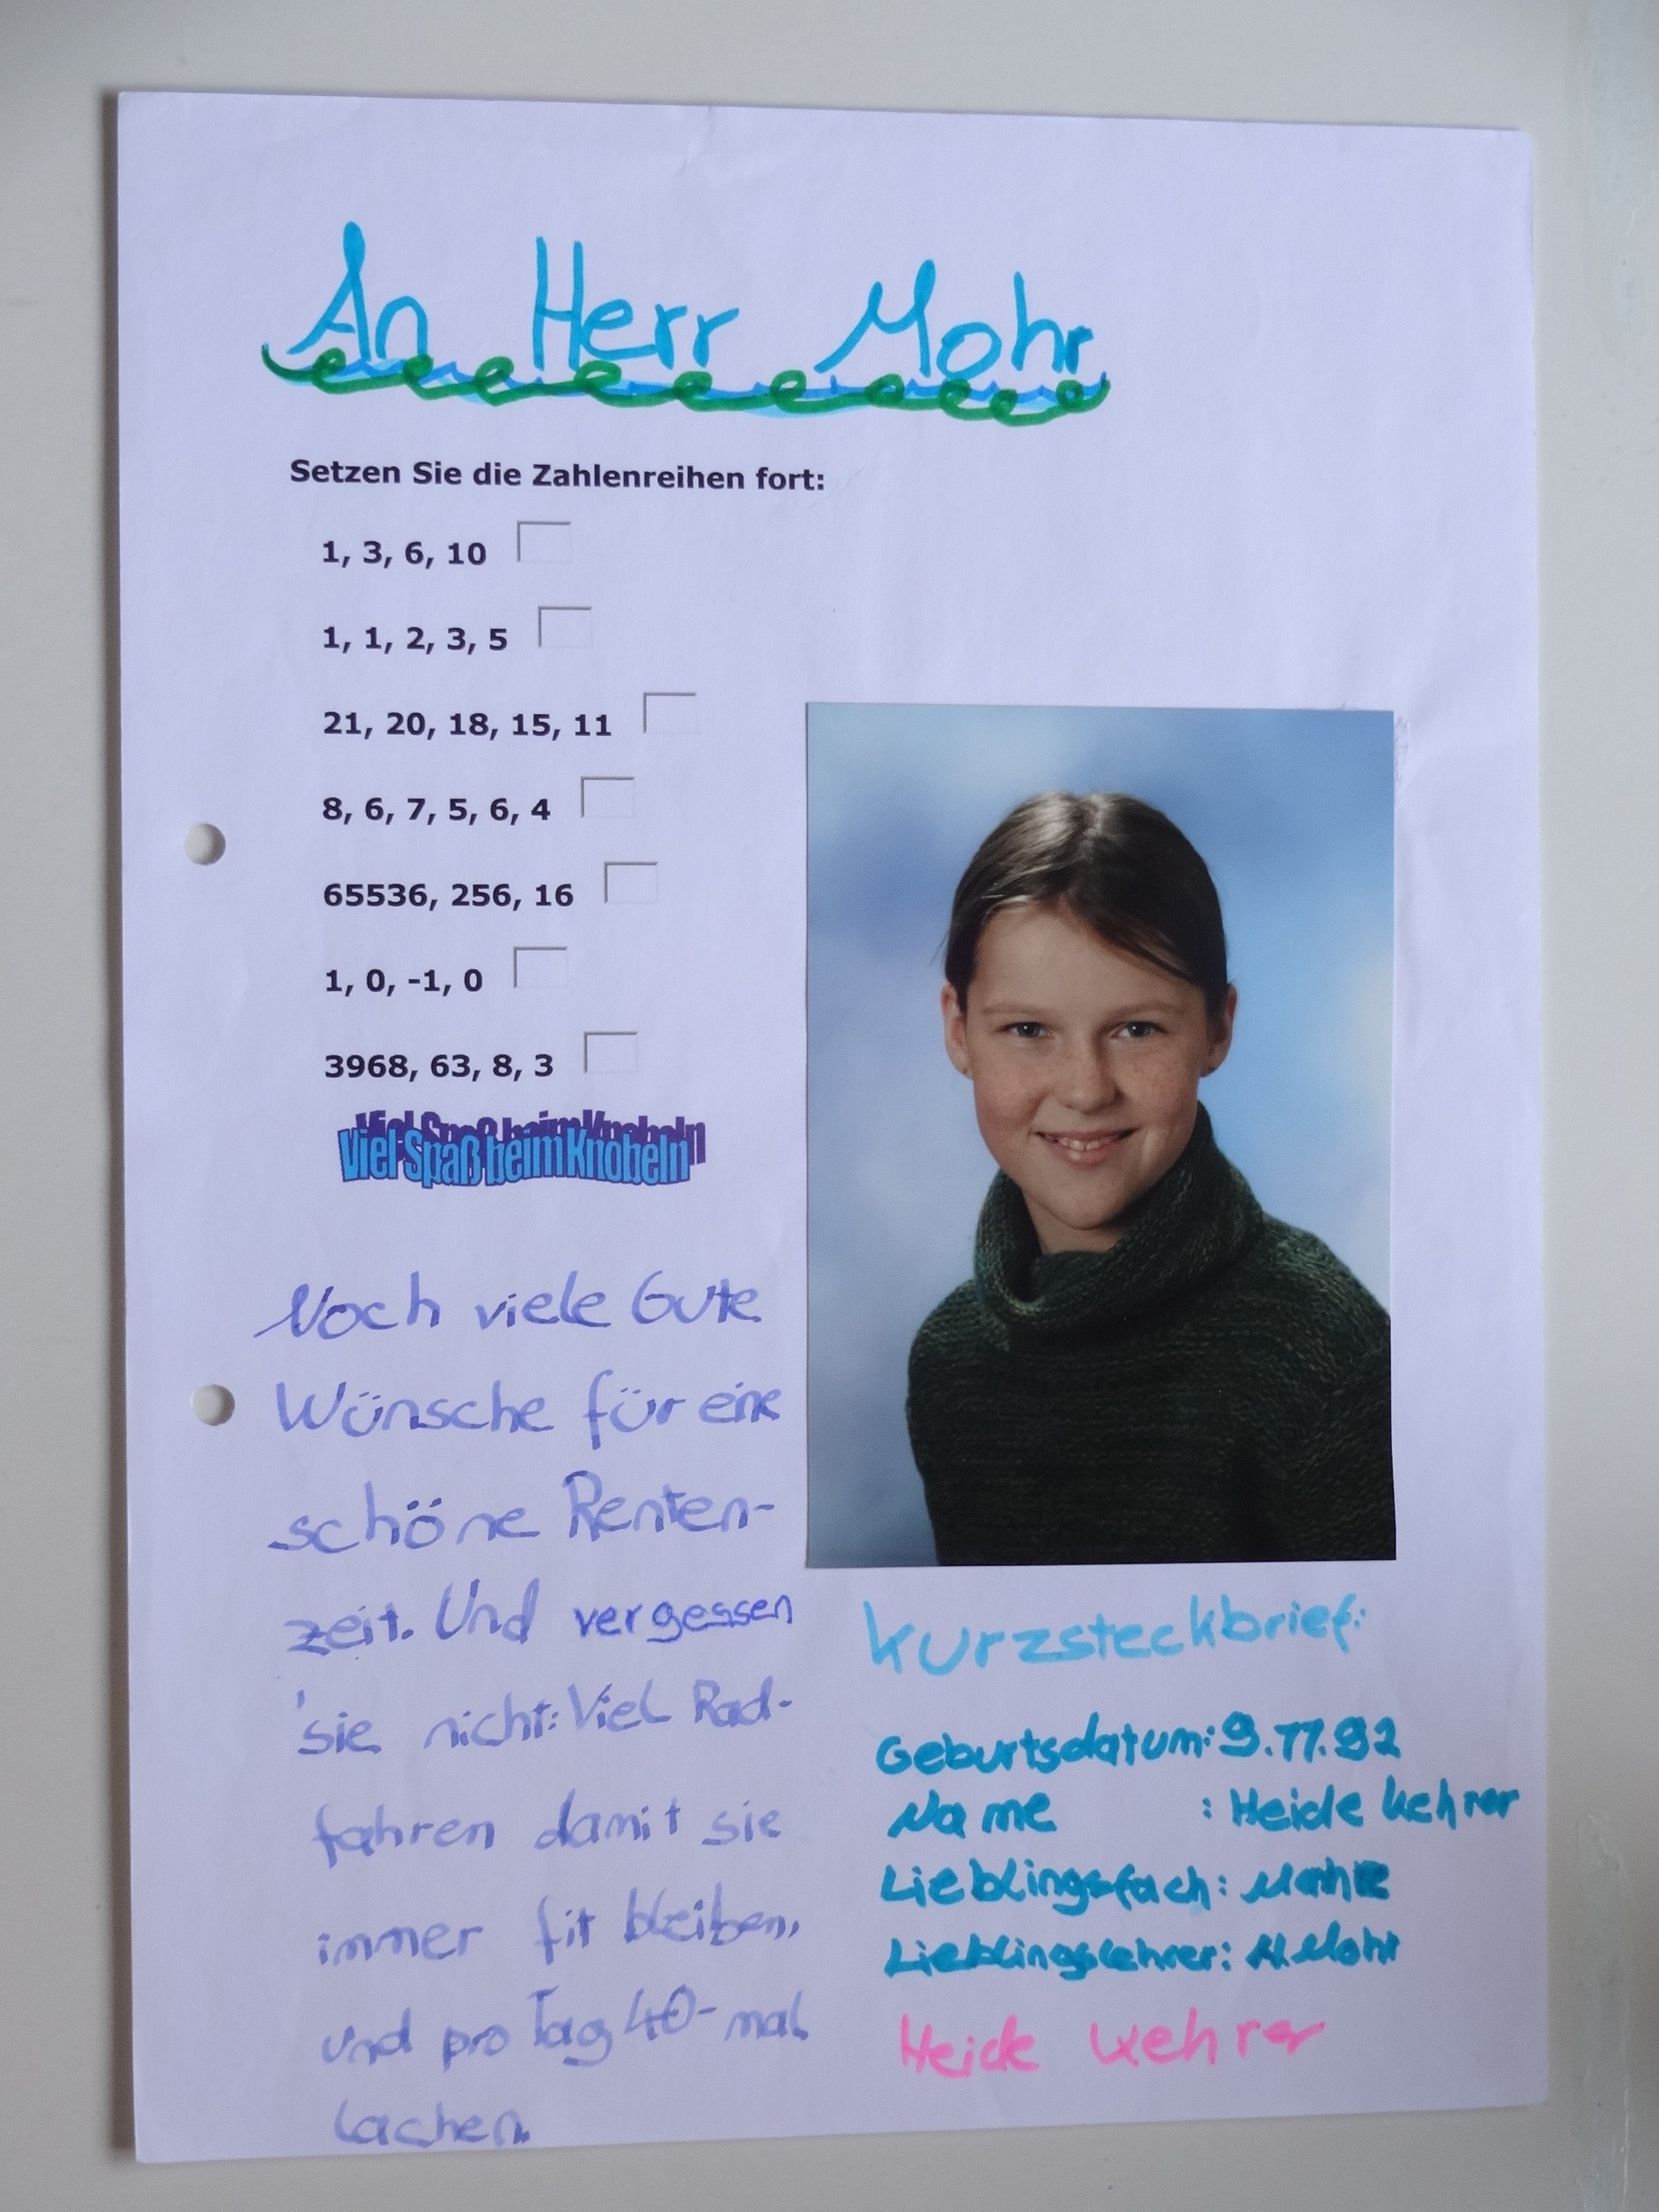 An Herr Mohr
Setzen Sie die Zahlenreihen fort:
1, 3, 6, 10
1, 1, 2, 3, 5
21, 20, 18, 15, 11
8, 6, 7, 5, 6, 4
65536, 256, 16
1, 0, -1, 0
3968, 63, 8, 3
Viel Spaß beim Knobeln
Noch viele Gute
Wünsche für eine
schöne Renten-
zeit. Und vergessen
sie nicht: Viel Rad-
fahren damit sie
immer fit bleiben,
und pro Tag 40-mal
lachen.
Kurzsteckbrief:
Geburtsdatum: 9.11.92
Name : Heide Kehrer
Lieblingsfach: Mathe
Lieblingslehrer: H. Mohr
Heide Kehrer